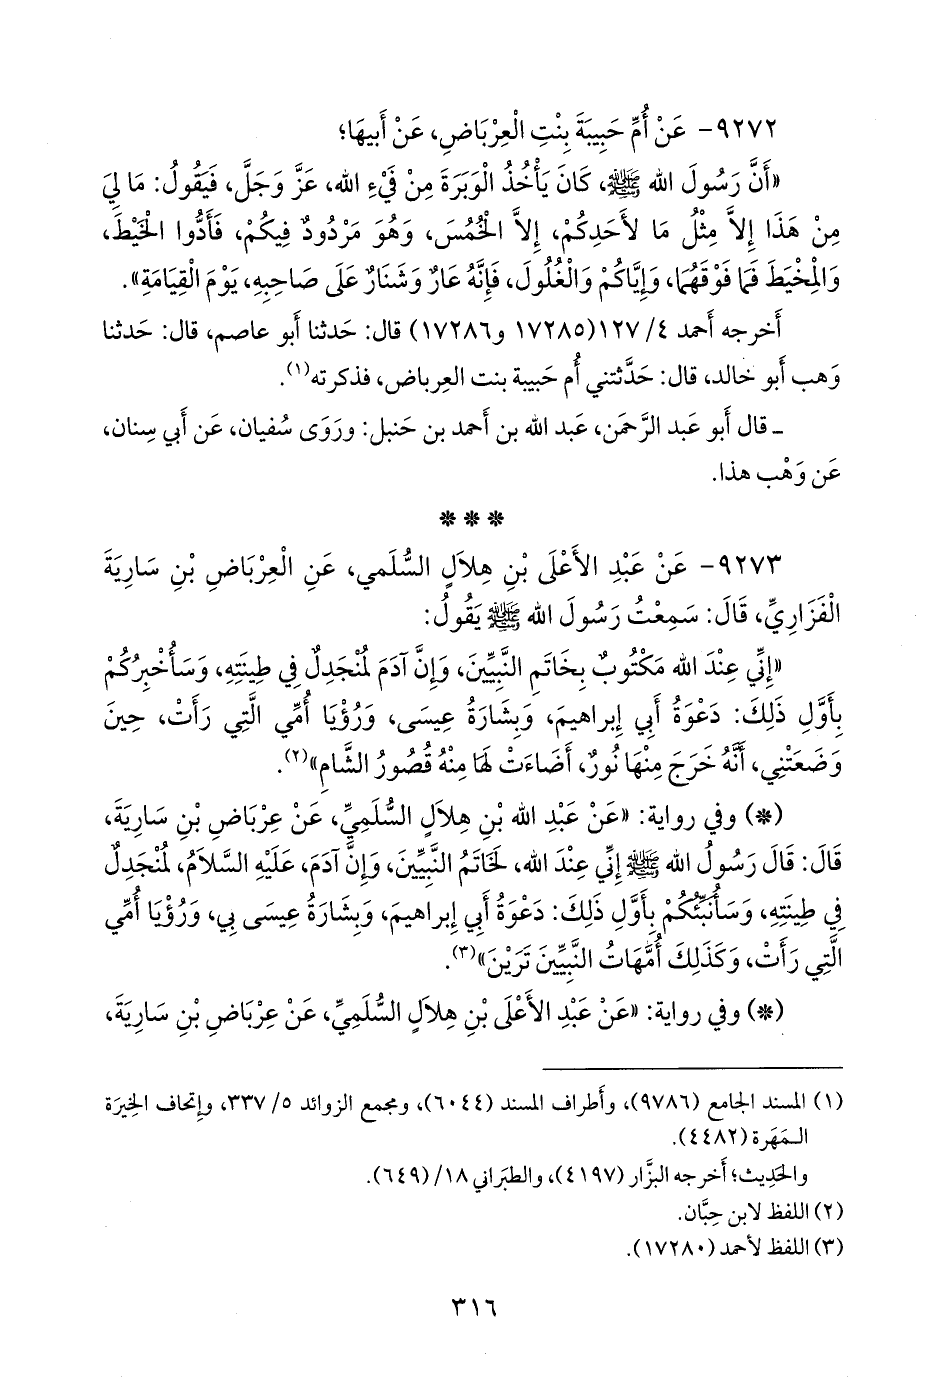 ٩٢٧٢- عَنْ أُمِّ حَبِيبَةَ بِنْتِ الْعِرْبَاضِ، عَنْ أَبِيهَا؛
«أَنَّ رَسُولَ الله ﷺ، كَانَ يَأْخُذُ الْوَبَرَةَ مِنْ فَيْءِ الله، عَزَّ وَجَلَّ، فَيَقُولُ: مَا لِيَ
مِنْ هَذَا إِلاَّ مِثْلُ مَا لأَحَدِكُمْ، إِلاَّ الْخُمُسَ، وَهُوَ مَرْدُودٌ فِيكُمْ، فَأَدُّوا الْخَيْطَ،
وَالْمِخْيَطَ فَمَا فَوْقَهُمَا، وَإِيَّاكُمْ وَالْغُلُولَ، فَإِنَّهُ عَارٌ وَشَنَارٌ عَلَى صَاحِبِهِ، يَوْمَ الْقِيَامَةِ».
أَخرجه أَحمد ٤/ ١٢٧(١٧٢٨٥ و١٧٢٨٦) قال: حَدثنا أَبو عاصم، قال: حَدثنا
وَهب أَبو خالد، قال: حَدَّثتني أُم حَبيبة بنت العِرباض، فذكرته(١).
ـ قال أَبو عَبد الرَّحمَن، عَبد الله بن أَحمد بن حَنبل: ورَوَى سُفيان، عَن أَبي سِنان،
عَن وَهْب هذا.
* * *
٩٢٧٣- عَنْ عَبْدِ الأَعْلَى بْنِ هِلاَلٍ السُّلَمي، عَنِ الْعِرْبَاضِ بْنِ سَارِيَةَ
الْفَزَارِيِّ، قَالَ: سَمِعْتُ رَسُولَ الله ﷺ يَقُولُ:
«إِنِّي عِنْدَ الله مَكْتُوبٌ بِخَاتَمِ النَّبِيِّينَ، وَإِنَّ آدَمَ لَمُنْجَدِلٌ فِي طِينَتِهِ، وَسَأُخْبِرُكُمْ
بِأَوَّلِ ذَلِكَ: دَعْوَةُ أَبِي إِبراهيمَ، وَبِشَارَةُ عِيسَى، وَرُؤْيَا أُمِّي الَّتِي رَأَتْ، حِينَ
وَضَعَتْنِي، أَنَّهُ خَرَجَ مِنْهَا نُورٌ، أَضَاءَتْ لَهَا مِنْهُ قُصُورُ الشَّامِ»(٢).
(*) وفي رواية: «عَنْ عَبْدِ الله بْنِ هِلاَلٍ السُّلَمِيِّ، عَنْ عِرْبَاضِ بْنِ سَارِيَةَ،
قَالَ: قَالَ رَسُولُ الله ﷺ إِنِّي عِنْدَ الله، لَخَاتَمُ النَّبِيِّينَ، وَإِنَّ آدَمَ، عَلَيْهِ السَّلاَمُ، لَمُنْجَدِلٌ
فِي طِينَتِهِ، وَسَأُنَبِّئُكُمْ بِأَوَّلِ ذَلِكَ: دَعْوَةُ أَبِي إِبراهيمَ، وَبِشَارَةُ عِيسَى بِي، وَرُؤْيَا أُمِّي
الَّتِي رَأَتْ، وَكَذَلِكَ أُمَّهَاتُ النَّبِيِّينَ تَرَيْنَ»(٣).
(*) وفي رواية: «عَنْ عَبْدِ الأَعْلَى بْنِ هِلاَلٍ السُّلَمِيِّ، عَنْ عِرْبَاضِ بْنِ سَارِيَةَ،
(١) المسند الجامع (٩٧٨٦)، وأَطراف المسند (٦٠٤٤)، ومجمع الزوائد ٥/ ٣٣٧، وإتحاف الخِيرَة
المَهَرة (٤٤٨٢).
والحَدِيث؛ أَخرجه البزَّار (٤١٩٧)، والطبَراني ١٨/ (٦٤٩).
(٢) اللفظ لابن حِبَّان.
(٣) اللفظ لأَحمد (١٧٢٨٠).
٣١٦